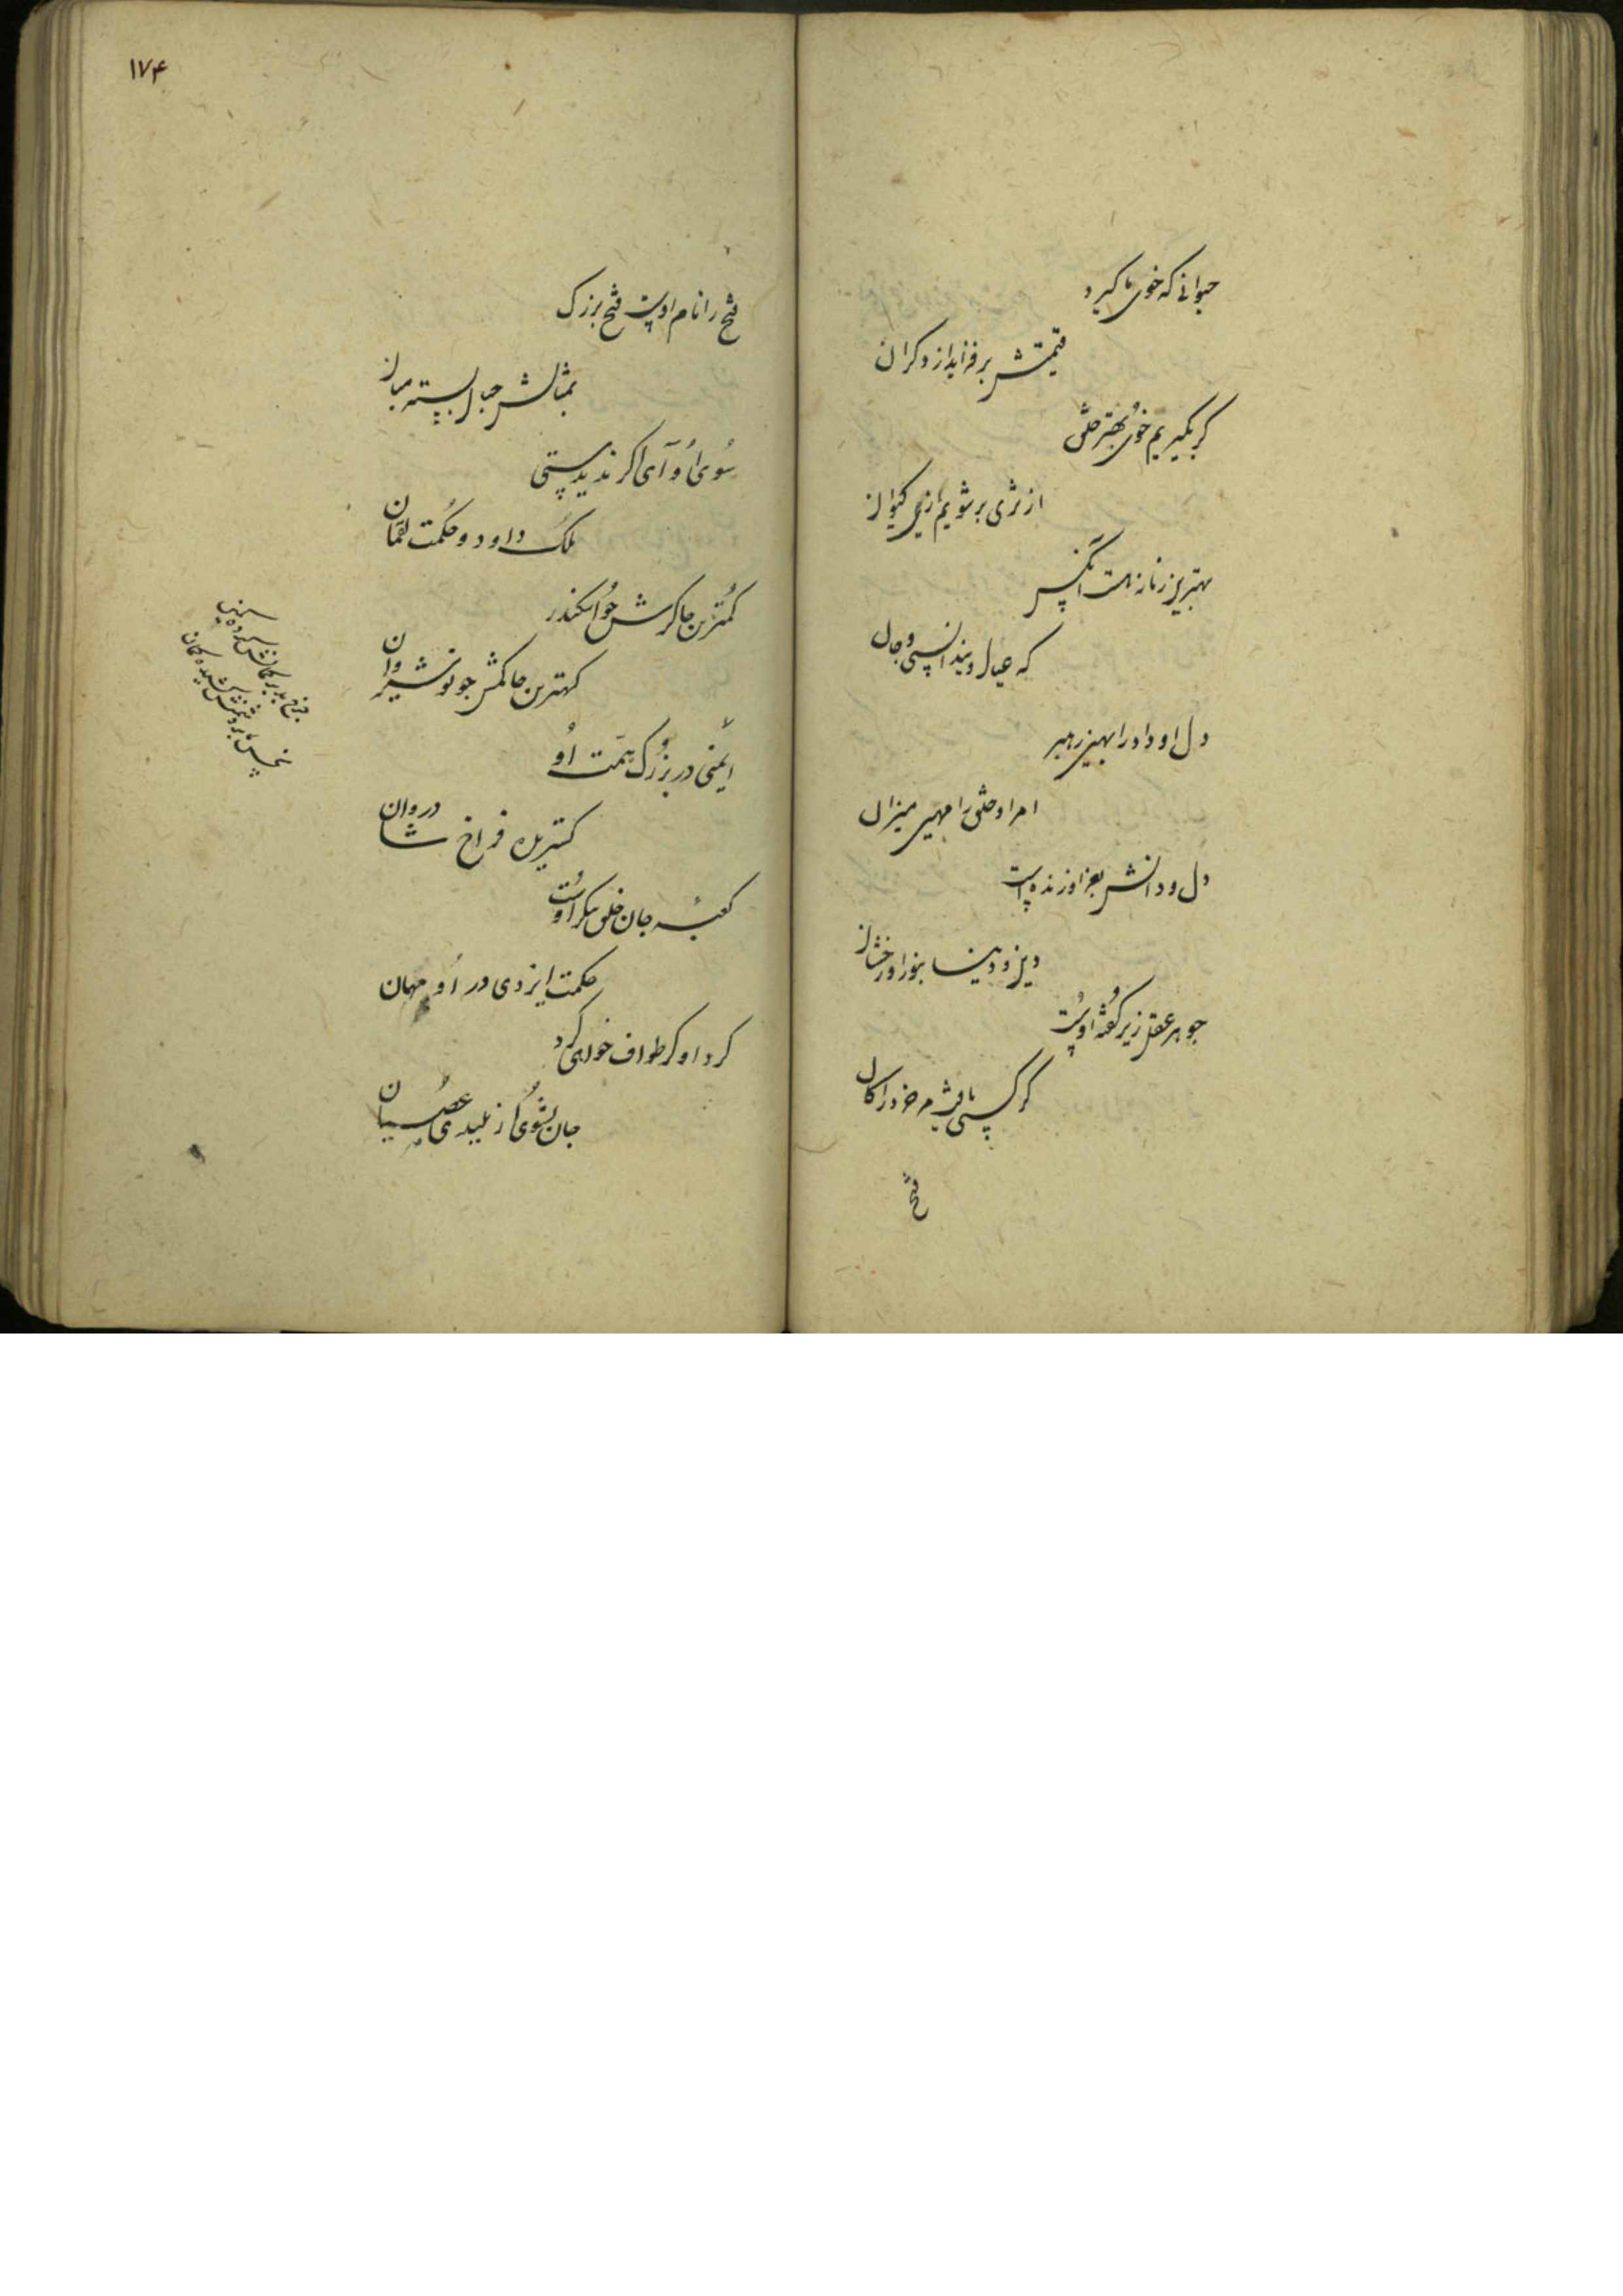 حیوانی که خوی ما کیرد
قیمتش برفزاید از دکران
کر بگیریم خوی بهتر خلق
از ثری برشویم از پی کیوان
بهترین زمانه هست آنکس
که عیال ویند انسی و جان
دل او داد را بهین رهبر
امر او خلق را مهین میزان
دل و دانش بعز او زنده است
دین و دنیا بنور او رخشان
جوهر عقل زیر گفته اوست
کر کسی یافت مر خرد را کان
فتح
۱۷۴
فتح را نام اوست فتح بزرک
بمثالش جبل بسته میان
سُوی اُو آی اکر ندیدستی
ملک داود و حکمت لقمان
کمترین چاکرش چو اسکندر
کهترین حاکمش چو نوشیروان
ایمنی در بزرک همت اُو
کستریده فراخ شادروان
کعبه جان خلق پیکر اوست
حکمت ایزدی در اُو مهمان
کرد او کر طواف خواهی کرد
جان بشوی از پلیدی عصیان